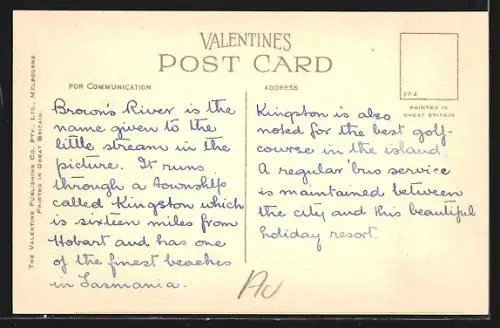 VALENTINES
POST CARD
FOR COMMUNICATION
ADDRESS
27-2
PRINTED IN
GREAT BRITAIN
THE VALENTINE PUBLISHING CO. PTY., LTD., MELBOURNE.
PRINTED IN GREAT BRITAIN.
Brown's River is the
name given to the
little stream in the
picture. It runs
through a township
called Kingston which
is sixteen miles from
Hobart and has one
of the finest beaches
in Tasmania.
Kingston is also
noted for the best golf-
course in the island.
A regular 'bus service
is maintained between
the city and this beautiful
holiday resort.